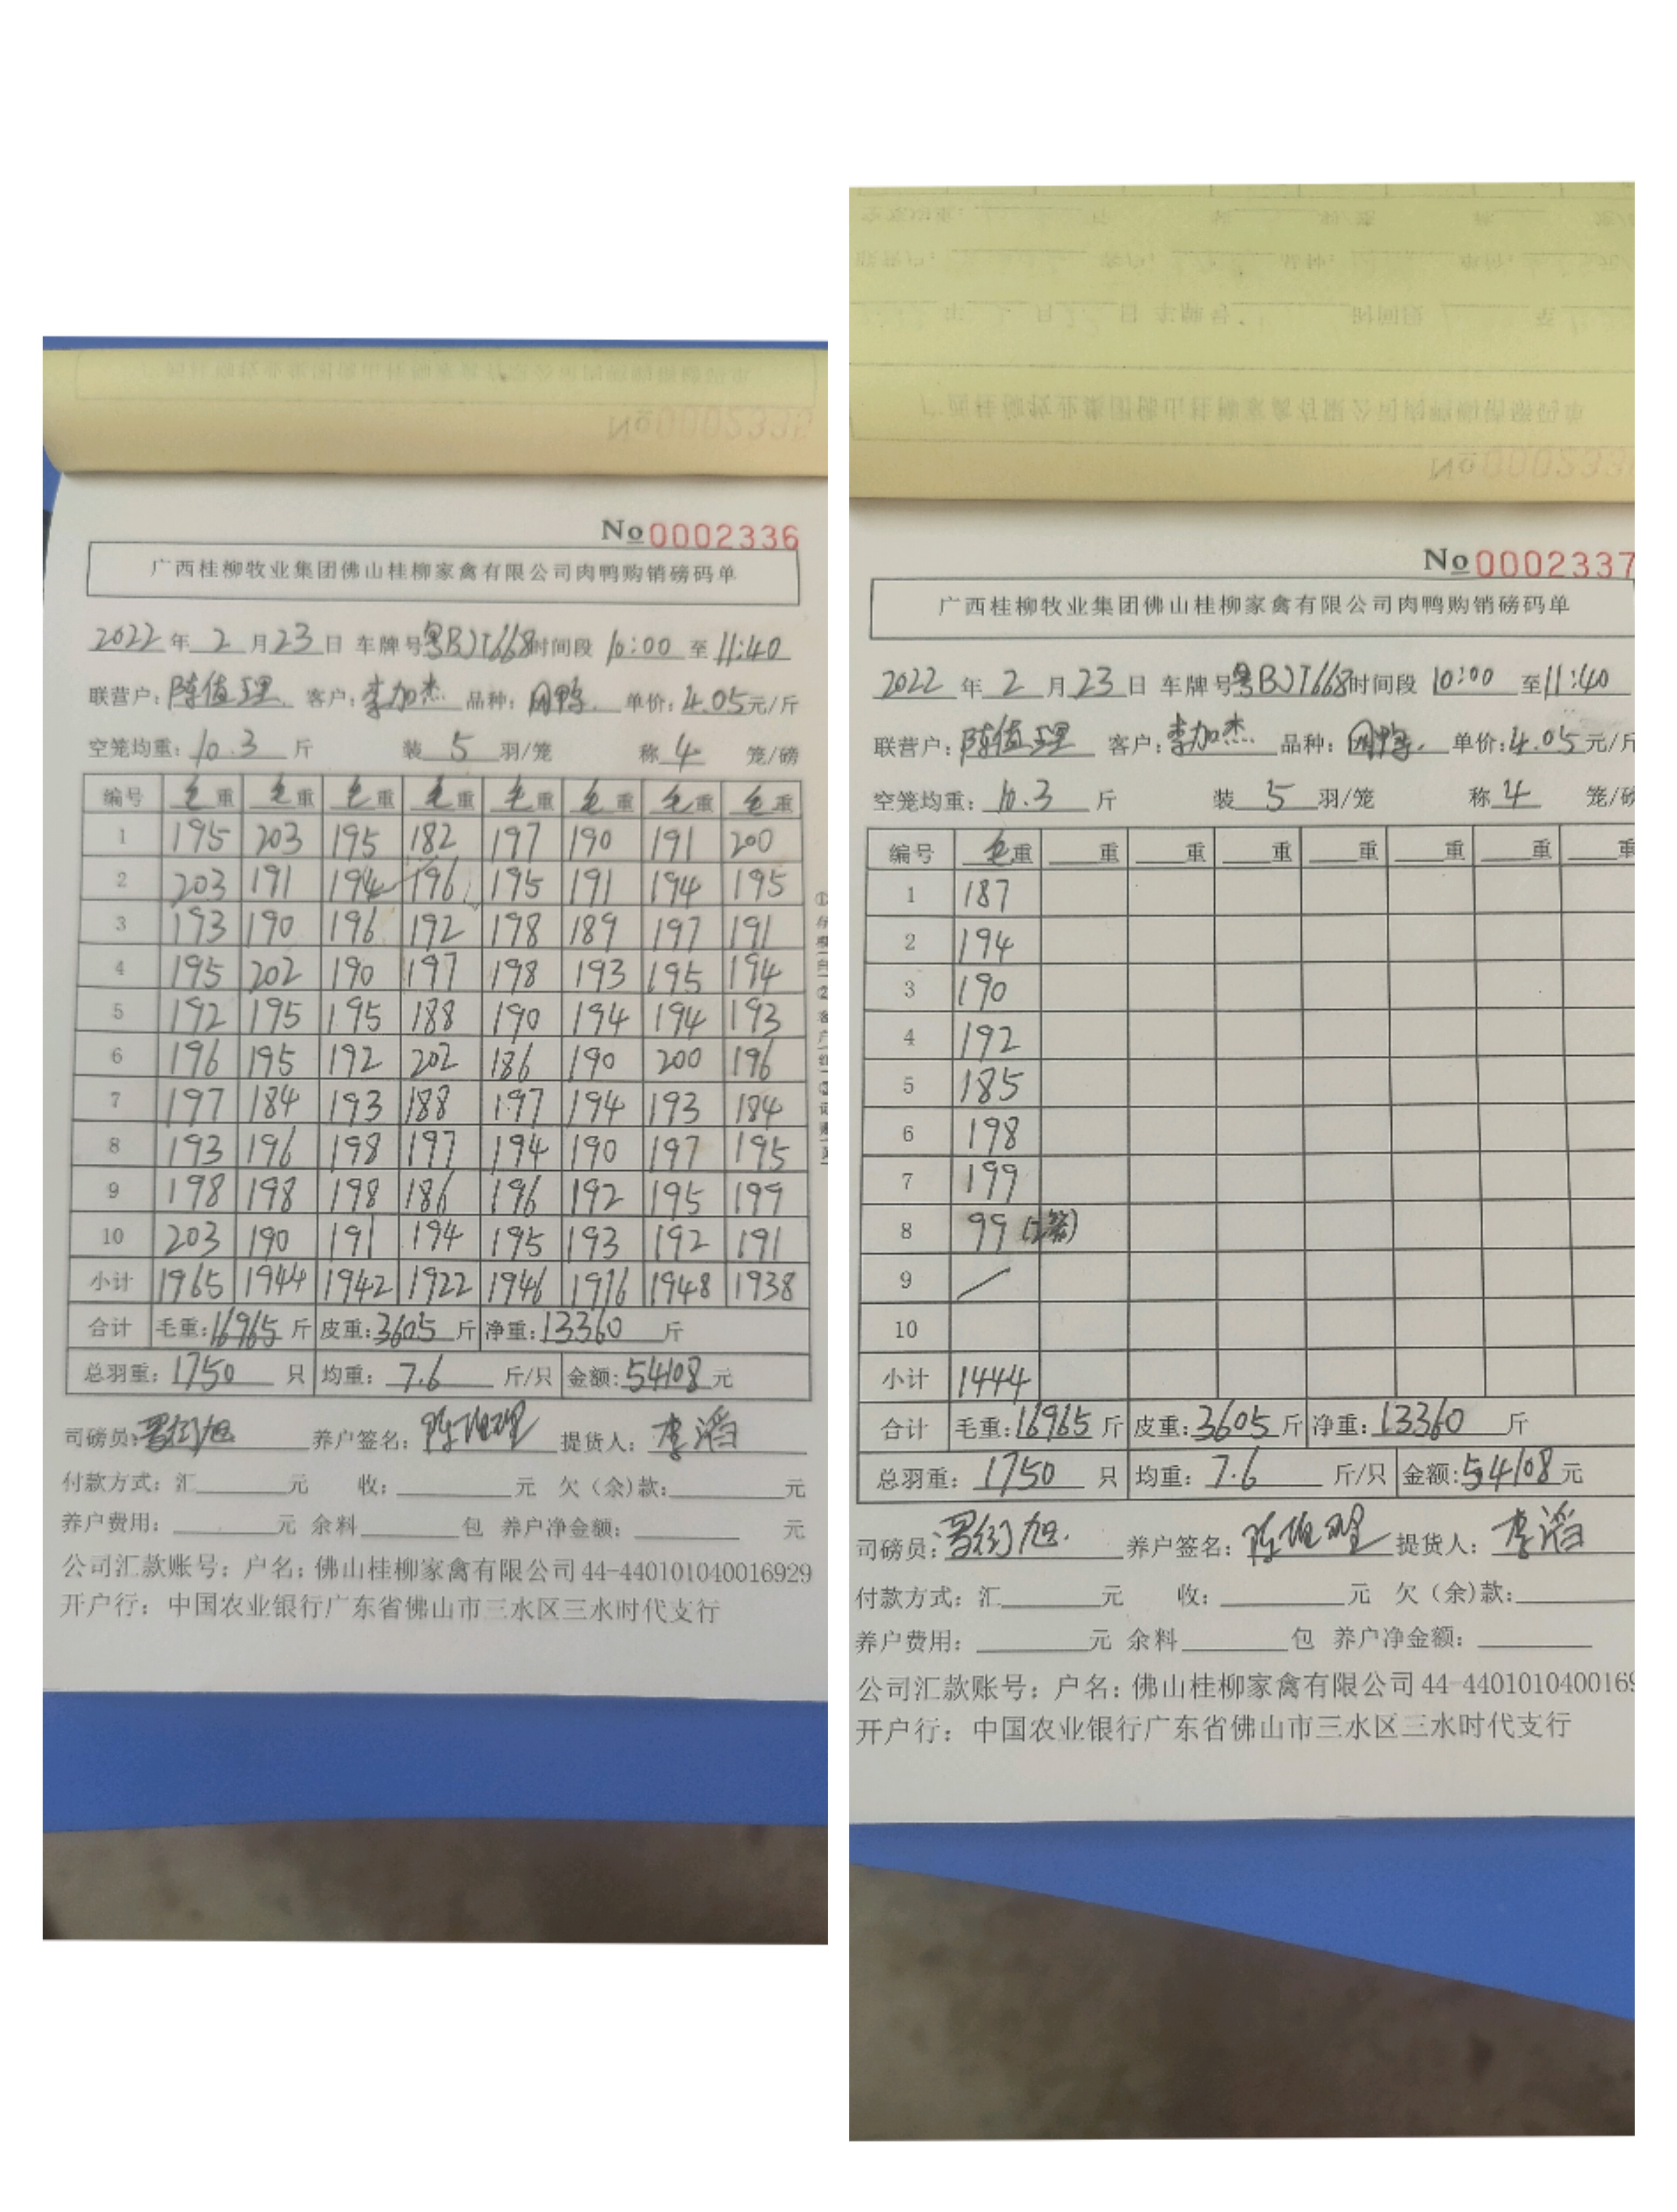 No 0002336
广西桂柳牧业集团佛山桂柳家禽有限公司肉鸭购销磅码单
2022 年 2 月 23 日 车牌号粤BJT668 时间段 10:00 至 11:40
联营户: 陈值理 客户: 李加杰 品种: 团鸭 单价: 4.05 元/斤
空笼均重: 10.3 斤 装 5 羽/笼 称 4 笼/磅
编号 毛重 毛重 毛重 毛重 毛重 毛重 毛重 毛重
1 195 203 195 182 197 190 191 200
2 203 191 194 196 195 191 194 195
3 193 190 196 192 198 189 197 191
4 195 202 190 197 198 193 195 194
5 192 195 195 188 190 194 194 193
6 196 195 192 202 186 190 200 196
7 197 184 193 188 197 194 193 184
8 193 196 198 197 194 190 197 195
9 198 198 198 186 196 192 195 199
10 203 190 191 194 195 193 192 191
小计 1965 1944 1942 1922 1946 1916 1948 1938
合计 毛重: 16965 斤 皮重: 3605 斤 净重: 13360 斤
总羽重: 1750 只 均重: 7.6 斤/只 金额: 54108 元
司磅员: 养户签名: 提货人: 李滔
付款方式: 汇 元 收: 元 欠(余)款: 元
养户费用: 元 余料 包 养户净金额: 元
公司汇款账号: 户名: 佛山桂柳家禽有限公司 44-440101040016929
开户行: 中国农业银行广东省佛山市三水区三水时代支行
No 0002337
广西桂柳牧业集团佛山桂柳家禽有限公司肉鸭购销磅码单
2022 年 2 月 23 日 车牌号粤BJT668 时间段 10:00 至 11:40
联营户: 陈值理 客户: 李加杰 品种: 团鸭 单价: 4.05 元/斤
空笼均重: 10.3 斤 装 5 羽/笼 称 4 笼/磅
编号 毛重 重 重 重 重 重 重 重
1 187
2 194
3 190
4 192
5 185
6 198
7 199
8 99 (2笼)
9
10
小计 1444
合计 毛重: 16965 斤 皮重: 3605 斤 净重: 13360 斤
总羽重: 1750 只 均重: 7.6 斤/只 金额: 54108 元
司磅员: 养户签名: 提货人: 李滔
付款方式: 汇 元 收: 元 欠(余)款:
养户费用: 元 余料 包 养户净金额:
公司汇款账号: 户名: 佛山桂柳家禽有限公司 44-4401010400169
开户行: 中国农业银行广东省佛山市三水区三水时代支行